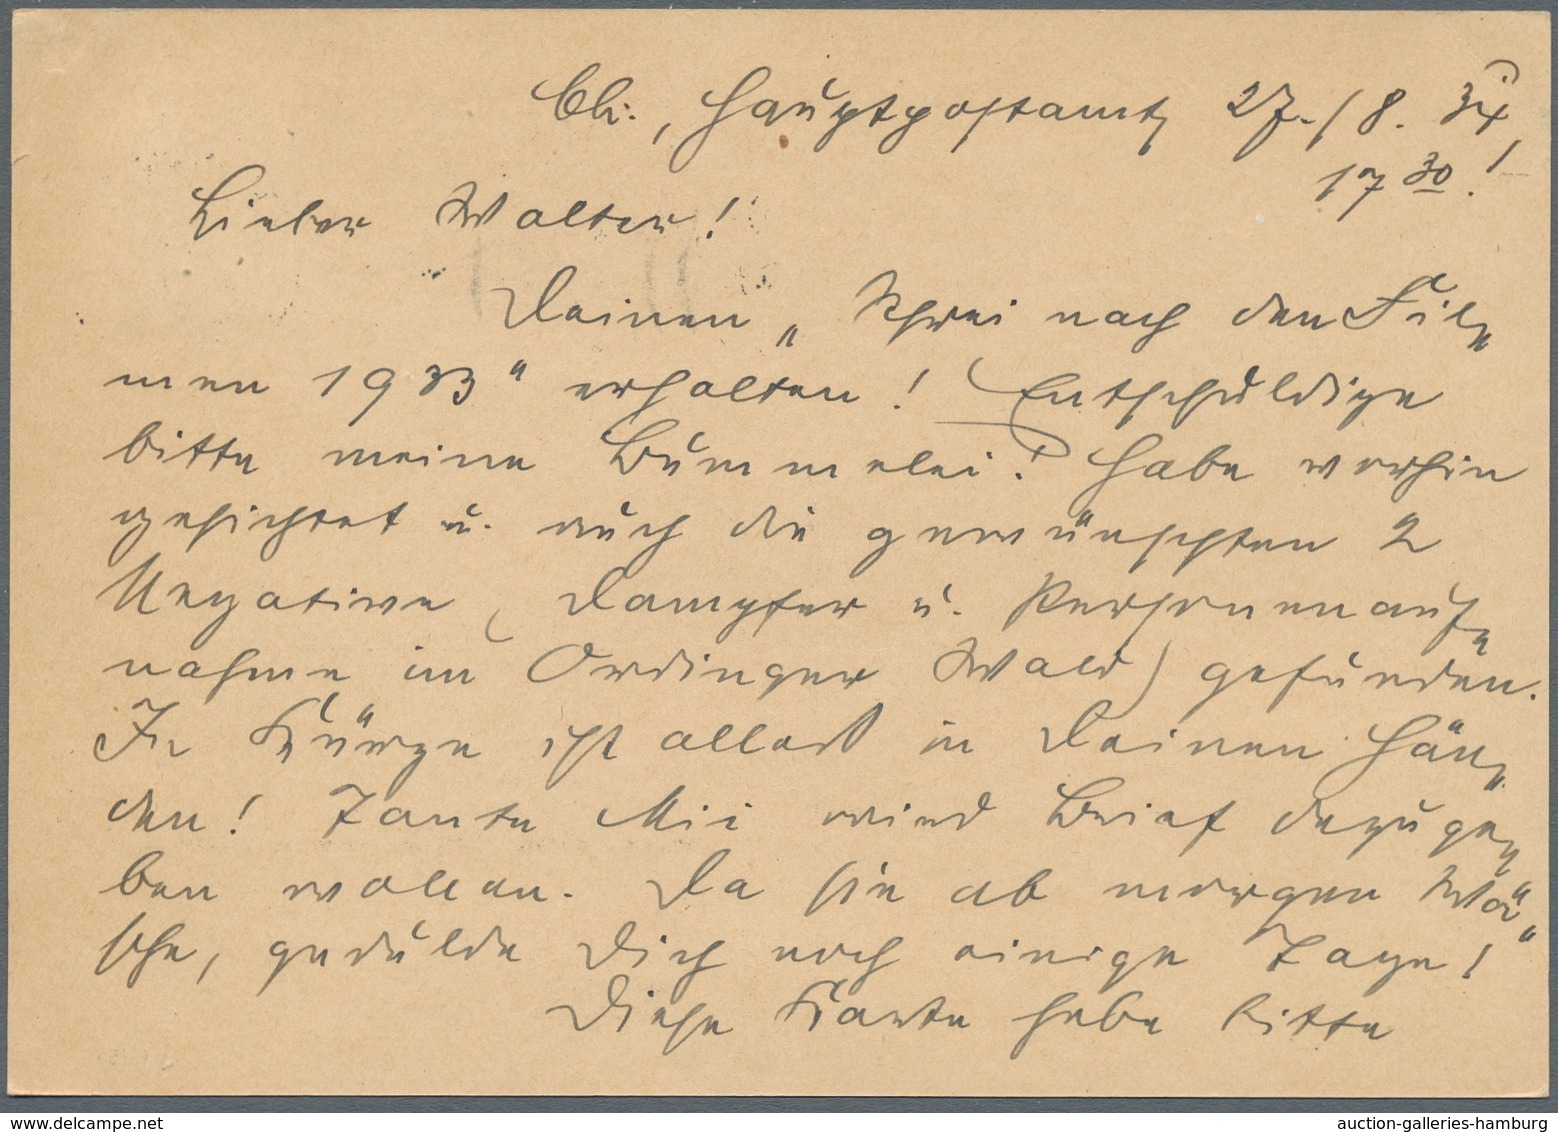 Bln., Hauptpostamt, 27./8. 34,
17 30!
Lieber Walter!
Deinen „Schrei nach den Fil„
men 1933“ erhalten! Entschuldige
bitte meine Bummelei! Habe vorhin
gesichtet u. auch die gewünschten 2
Negative (Dampfer u. Personenauf„
nahme im Ordinger Wald) gefunden.
In Kürze ist alles in Deinen Hän„
den! Tante Mii wird Brief dazuge„
ben wollen. Da sie ab morgen Wä„
sche, gedulde Dich noch einige Tage!
Diese Karte hebe bitte
auction-galleries-hamburg
delcampe.net